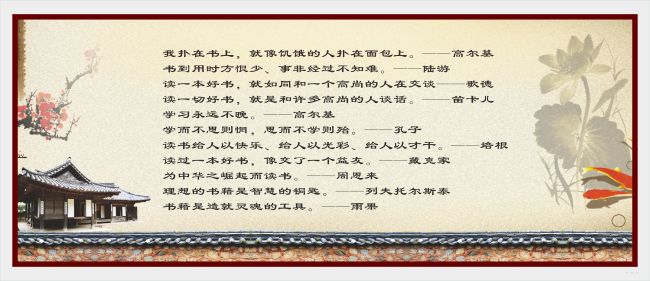 我扑在书上，就像饥饿的人扑在面包上。——高尔基
书到用时方恨少、事非经过不知难。——陆游
读一本好书，就如同和一个高尚的人在交谈——歌德
读一切好书，就是和许多高尚的人谈话。——笛卡儿
学习永远不晚。——高尔基
学而不思则惘，思而不学则殆。——孔子
读书给人以快乐、给人以光彩、给人以才干。——培根
读过一本好书，像交了一个益友。——臧克家
为中华之崛起而读书。——周恩来
理想的书籍是智慧的钥匙。——列夫托尔斯泰
书籍是造就灵魂的工具。——雨果